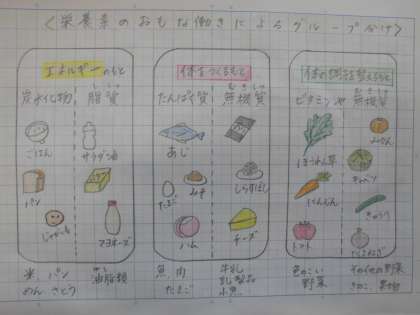 〈栄養素のおもな働きによるグループ分け〉
エネルギーのもと
炭水化物
脂質
ししつ
ごはん
サラダ油
パン
じゃがいも
マヨネーズ
米、パン
めん、さとう
油脂類
体をつくるもと
たんぱく質
無機質
むきしつ
あじ
たまご
みそ
しらす干し
ハム
チーズ
魚、肉
たまご
牛乳
乳製品
小魚
体の調子を整えるもと
ビタミンや
無機質
むきしつ
ほうれん草
みかん
キャベツ
にんじん
きゅうり
トマト
たまねぎ
色のこい
野菜
その他の野菜
きのこ、果物